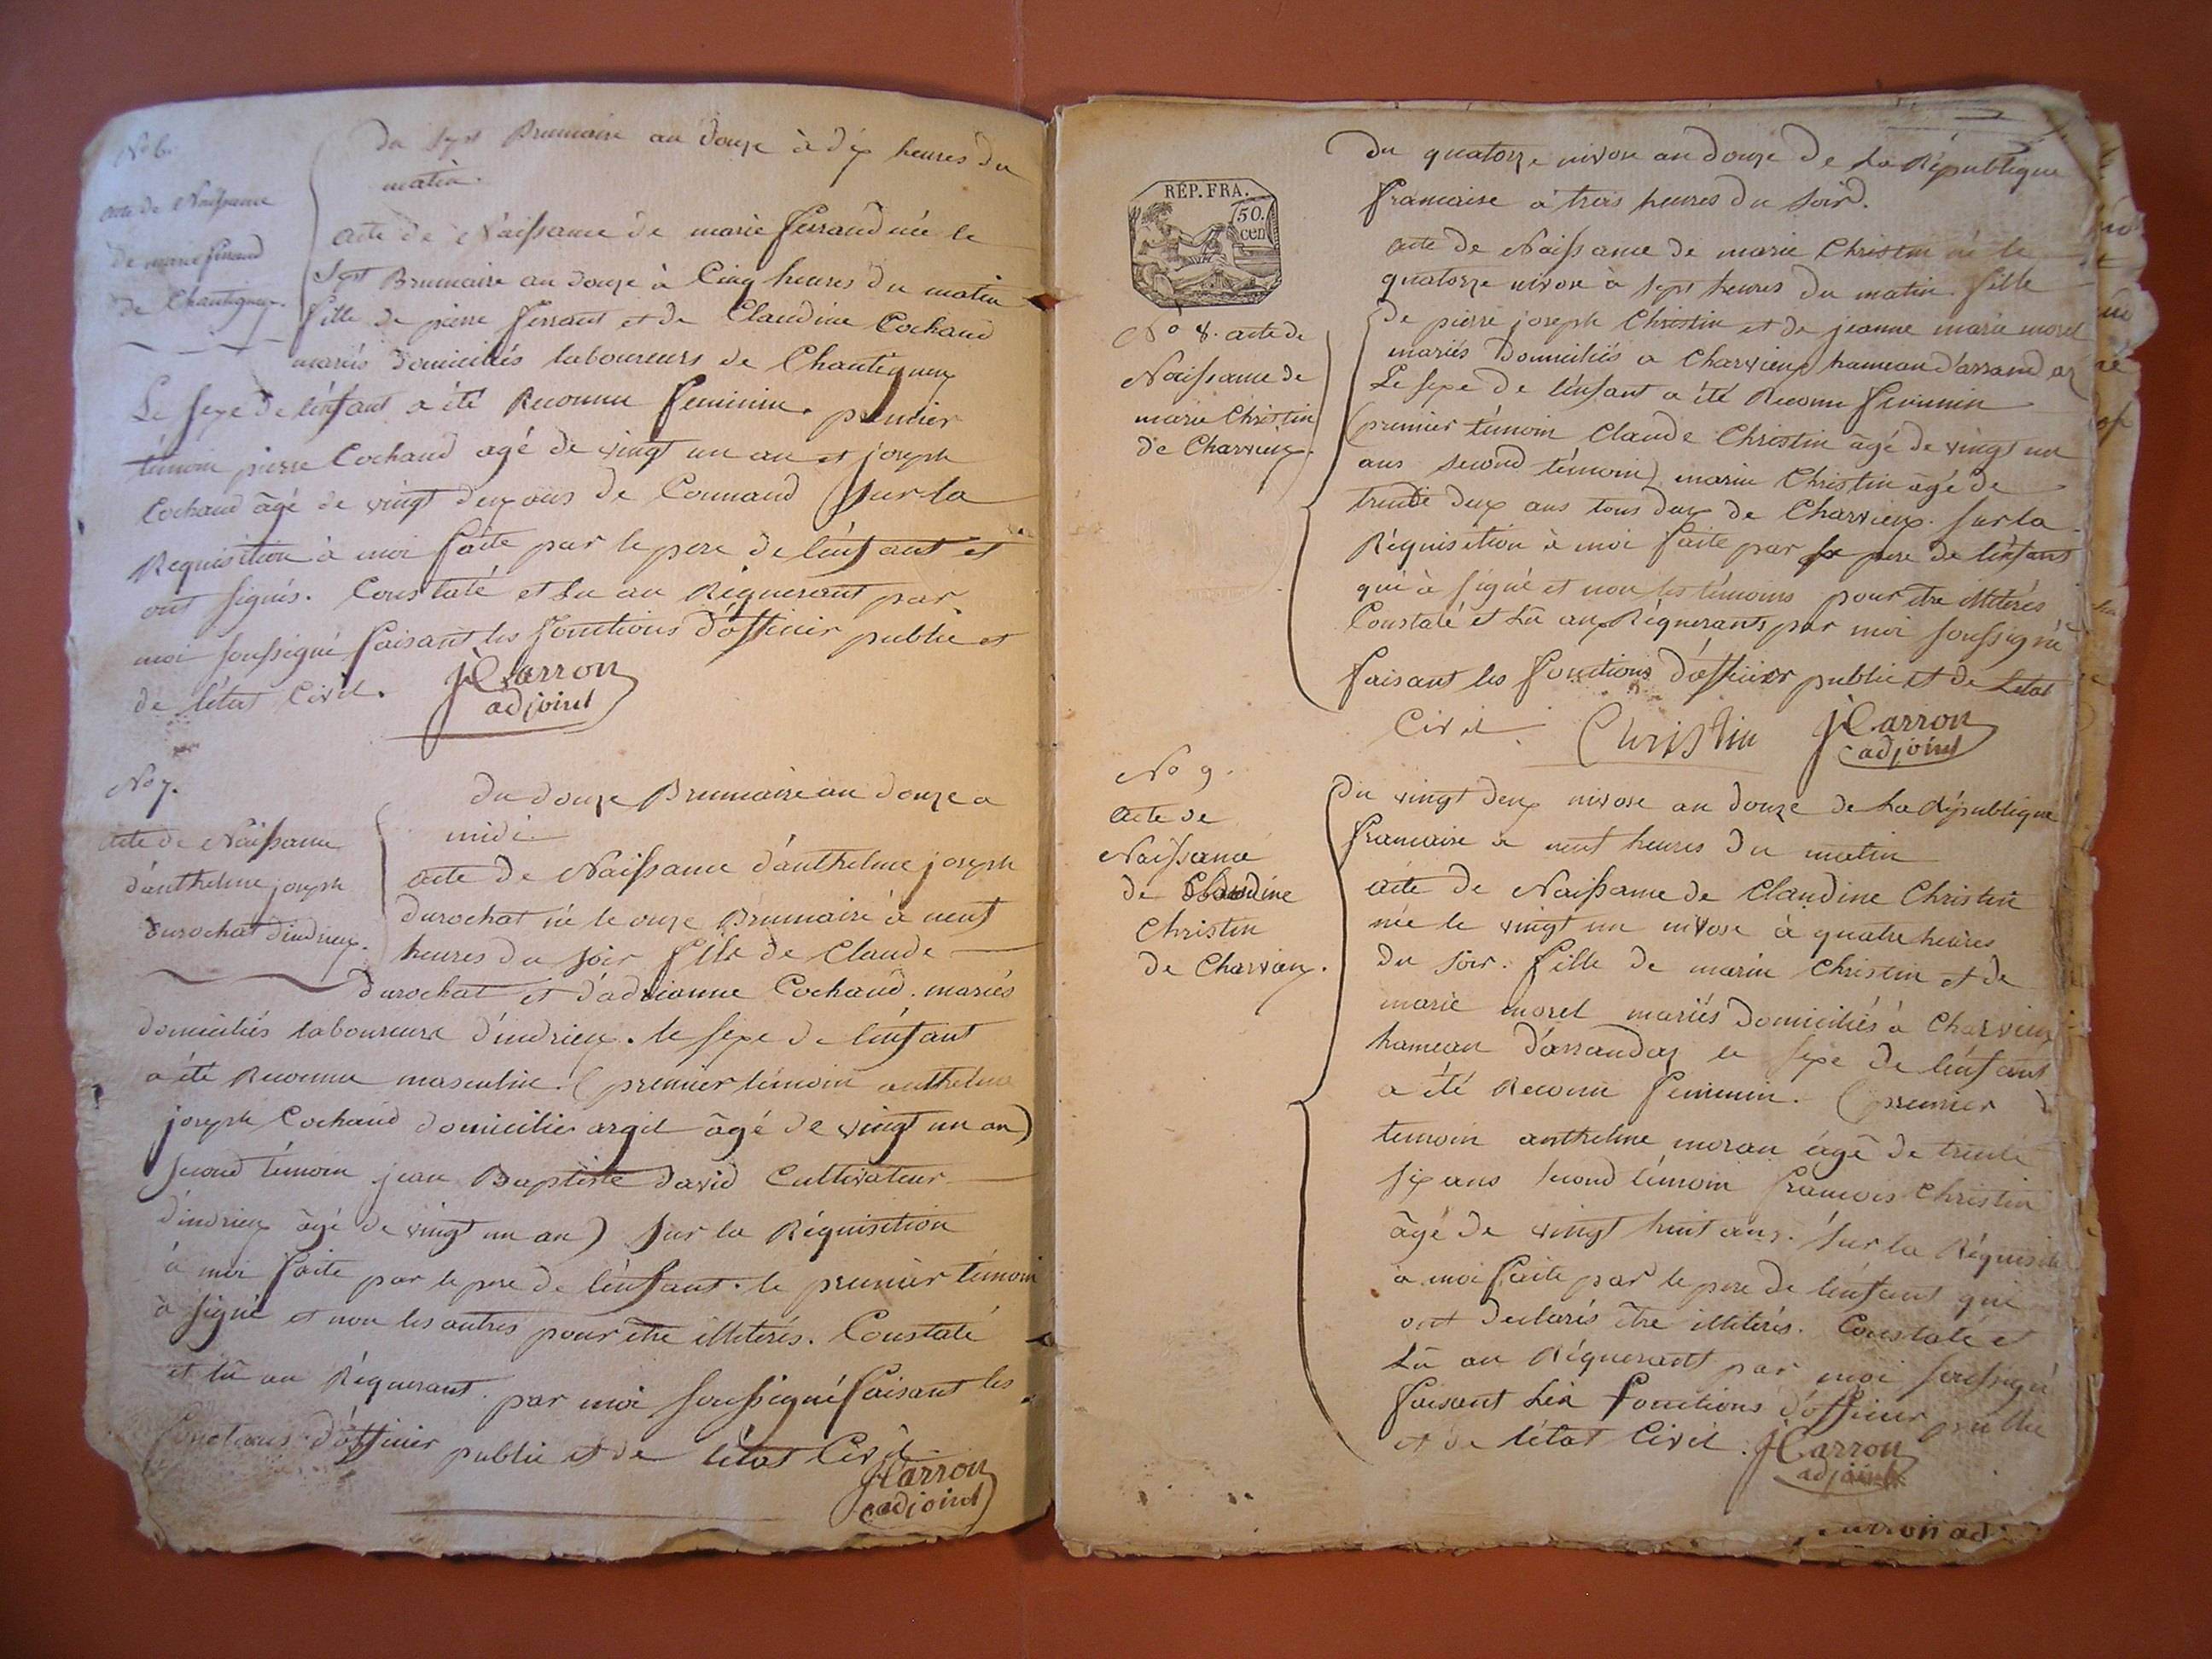 No 6.
acte de Naissance
de marie ferrand
de Chantigneux.
Du sept Brumaire an douze à dix heures du
matin.
acte de Naissance de marie ferrand née le
sept Brumaire an douze à Cinq heures du matin
fille de pierre ferrant et de Claudine Cochaud
mariés domiciliés laboureurs de Chantigneux
Le sexe de l'enfant a été Reconnu feminin. premier
témoin pierre Cochaud agé de vingt un an et joseph
Cochaud âgé de vingt deux ans de Connaud sur la
Requisition à moi faite par le pere de l'enfant et
ont signés. Constaté et Lu au Réquerant par
moi soussigné faisant les fonctions d'officier public et
de l'état Civil.
JCarron
adjoint
No 7.
acte de Naissance
d'anthelme joseph
durochat d'indrieux.
du douze Brumaire an douze a
midi
acte de Naissance d'anthelme joseph
durochat né le onze Brumaire à neuf
heures du soir fils de Claude
durochat et d'adrianne Cochaud. mariés
domiciliés laboureurs d'indrieux. le sexe de l'enfant
a été Reconnu masculin. (premier témoin anthelme
joseph Cochaud domicilié argit âgé de vingt un an)
second témoin jean Baptiste david Cultivateur
d'indrieux âgé de vingt un an) sur la Réquisition
à moi faite par le pere de l'enfant. le premier témoin
à signé et non les autres pour être illiterés. Constaté
et lû au Réquerant par moi soussigné faisant les
fonctions d'officier public et de létat Civil
JCarron
adjoint
RÉP. FRA.
50.
cen
No 8. acte de
Naissance de
marie Christin
de Charvieux.
Du quatorze nivose an douze de La République
francaise à trois heures du soir.
acte de Naissance de marie Christin né le
quatorze nivose à sept heures du matin fille
de pierre joseph Christin et de jeanne marie morel
mariés domiciliés a Charvieux hameau d'arrandaz
Le sexe de l'enfant a été Reconu feminin
(premier témoin Claude Christin âgé de vingt un
ans second témoin) marin Christin âgé de
trente deux ans tous deux de Charvieux. sur la
Réquisition à moi faite par le pere de l'enfant
qui à signé et non les témoins pour être illiterés
Constaté et Lû aux Réquerants par moi soussigné
faisant les fonctions d'officier public et de Letat
Civil. Christin JCarron
adjoint
No 9.
acte de
Naissance
de Claudine
Christin
de Charvieux.
Du vingt deux nivose an douze de La République
francaise a neuf heures du matin
acte de Naissance de Claudine Christin
née le vingt un nivose à quatre heures
du soir. fille de marin Christin et de
marie morel mariés domiciliés à Charvieux
hameau d'arrandaz le sexe de l'enfant
a été Reconu feminin. (premier
temoin anthelme moran âgé de trente
six ans second témoin francois Christin
âgé de vingt huit ans. sur la Réquisit
à moi faite par le pere de l'enfant qui
ont declarés être illiterés. Constaté et
Lû au Réquerant par moi soussigné
faisant Les fonctions d'officier public
et de l'état Civil. JCarron
adjoint